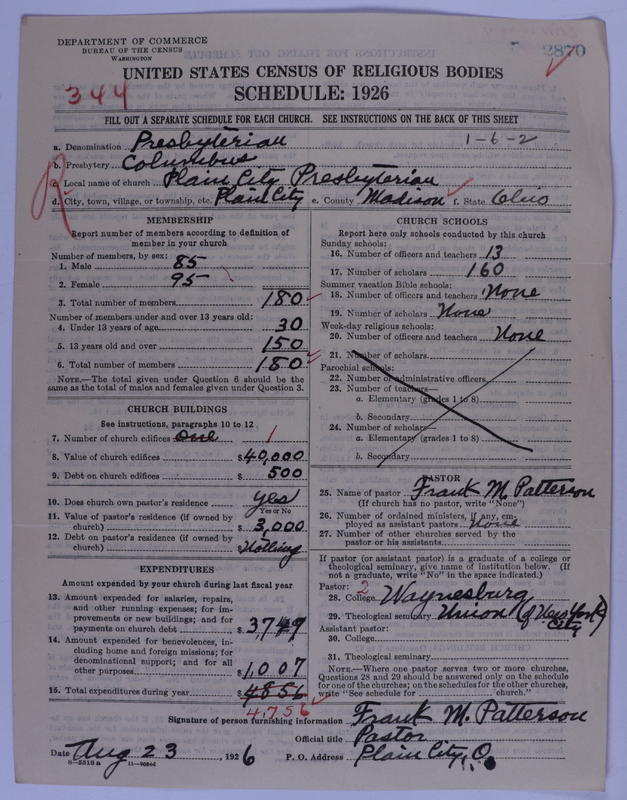 DEPARTMENT OF COMMERCE
BUREAU OF THE CENSUS
WASHINGTON
2870
UNITED STATES CENSUS OF RELIGIOUS BODIES
344
SCHEDULE: 1926
FILL OUT A SEPARATE SCHEDULE FOR EACH CHURCH. SEE INSTRUCTIONS ON THE BACK OF THIS SHEET
a. Denomination Presbyterian 1-6-2
b. Presbytery Columbus
c. Local name of church Plain City Presbyterian
d. City, town, village, or township, etc. Plain City e. County Madison f. State Ohio
MEMBERSHIP
Report number of members according to definition of member in your church
Number of members, by sex:
1. Male 85
2. Female 95
3. Total number of members 180
Number of members under and over 13 years old:
4. Under 13 years of age 30
5. 13 years old and over 150
6. Total number of members 180
NOTE.—The total given under Question 6 should be the same as the total of males and females given under Question 3.
CHURCH BUILDINGS
See instructions, paragraphs 10 to 12
7. Number of church edifices One 1
8. Value of church edifices $40,000
9. Debt on church edifices $ 500
10. Does church own pastor's residence Yes
Yes or No
11. Value of pastor's residence (if owned by church) $3,000
12. Debt on pastor's residence (if owned by church) $Nothing
EXPENDITURES
Amount expended by your church during last fiscal year
13. Amount expended for salaries, repairs, and other running expenses; for improvements or new buildings; and for payments on church debt $3,749
14. Amount expended for benevolences, including home and foreign missions; for denominational support; and for all other purposes $1,007
15. Total expenditures during year $4856
4,756
CHURCH SCHOOLS
Report here only schools conducted by this church
Sunday schools:
16. Number of officers and teachers 13
17. Number of scholars 160
Summer vacation Bible schools:
18. Number of officers and teachers None
19. Number of scholars None
Week-day religious schools:
20. Number of officers and teachers None
21. Number of scholars
Parochial schools:
22. Number of administrative officers
23. Number of teachers—
a. Elementary (grades 1 to 8)
b. Secondary
24. Number of scholars—
a. Elementary (grades 1 to 8)
b. Secondary
PASTOR
25. Name of pastor Frank M. Patterson
(If church has no pastor, write "None")
26. Number of ordained ministers, if any, employed as assistant pastors None
27. Number of other churches served by the pastor or his assistants
If pastor (or assistant pastor) is a graduate of a college or theological seminary, give name of institution below. (If not a graduate, write "No" in the space indicated.)
Pastor: 2
28. College Waynesburg
29. Theological seminary Union (of New York City)
Assistant pastor:
30. College
31. Theological seminary
NOTE.—Where one pastor serves two or more churches, Questions 28 and 29 should be answered only on the schedule for one of the churches; on the schedules for the other churches, write "See schedule for church."
Signature of person furnishing information Frank M. Patterson
Official title Pastor
Date Aug 23, 1926 P. O. Address Plain City, O.
8-5518 a